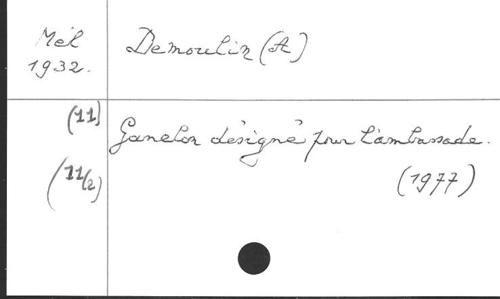 Mél
1932.
Demoulin (A)
(11)
Ganelon désigné pour l'ambassade.
(11/2)
(1977)